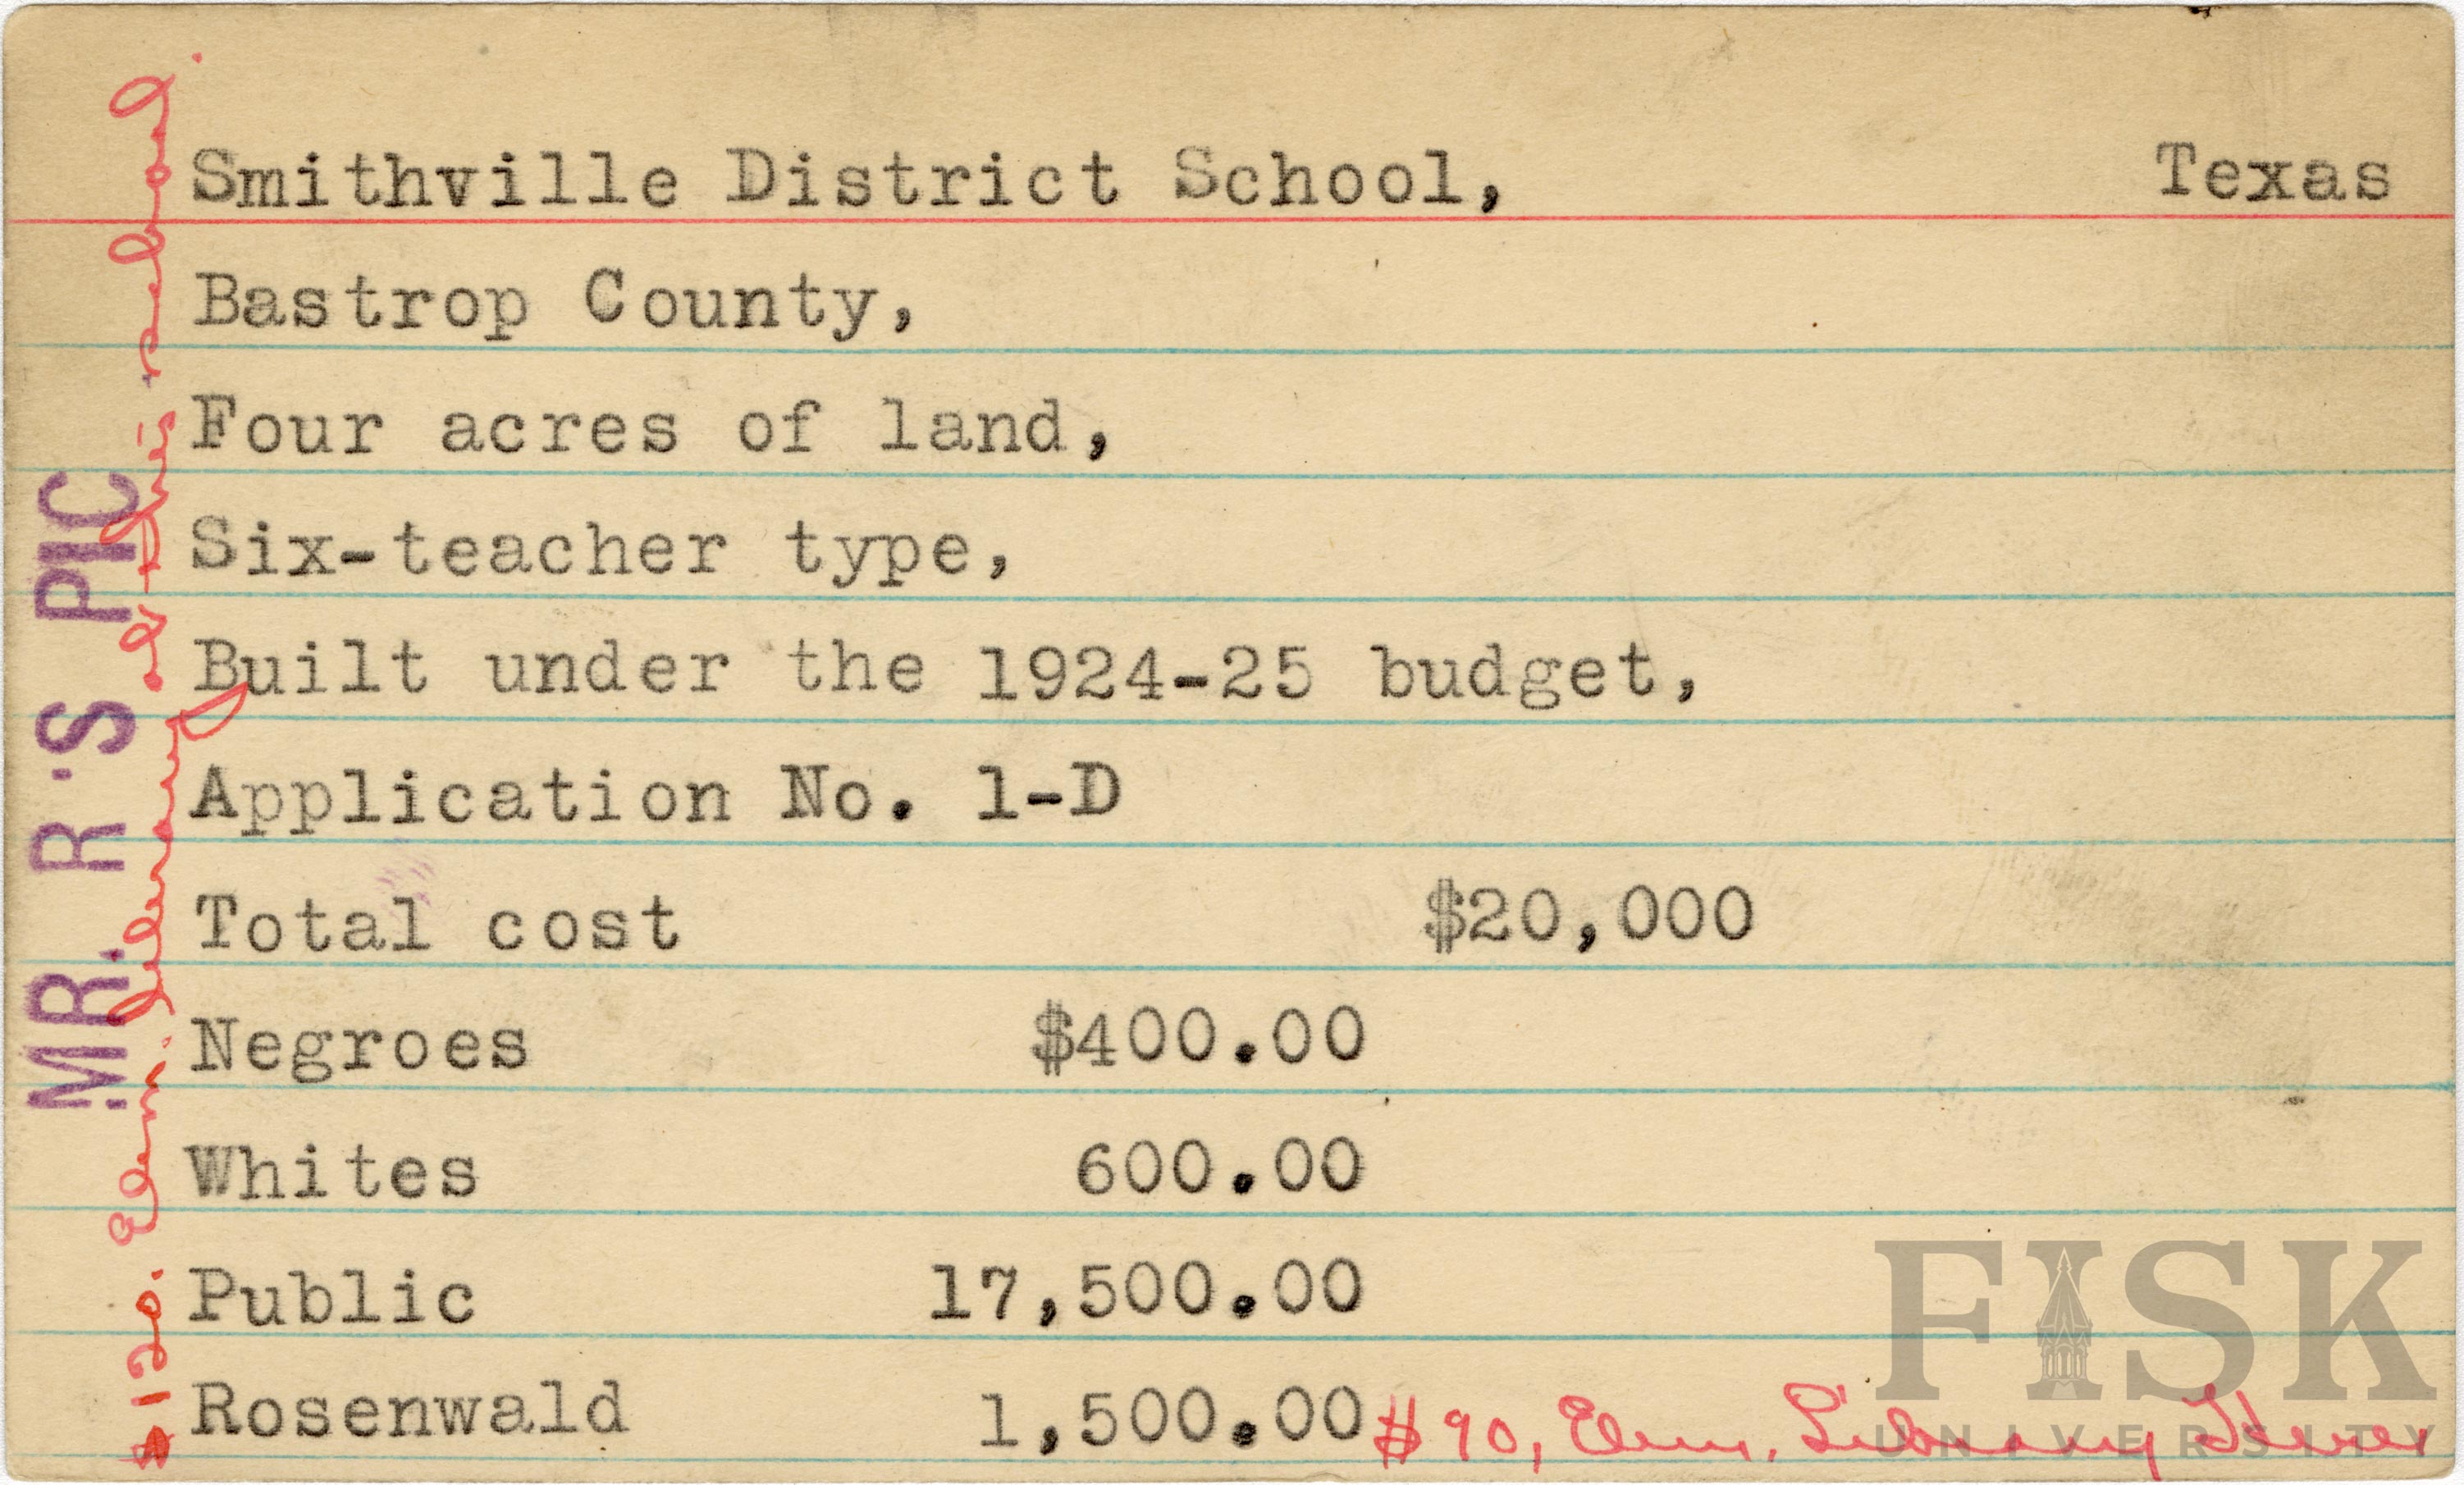 Smithville District School, Texas
Bastrop County,
Four acres of land,
Six-teacher type,
Built under the 1924-25 budget,
Application No. 1-D
Total cost $20,000
Negroes $400.00
Whites 600.00
Public 17,500.00
Rosenwald 1,500.00 $90, Elem. Library
MR. R.S PIC
$120. Elem. Library school.
FISK
UNIVERSITY